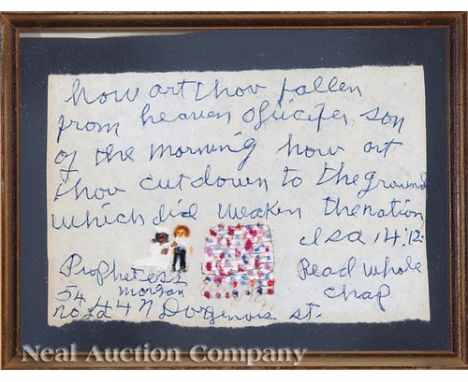 how art thov fallen
from heaven O lucifer son
of the morning how art
thov cut down to the ground
which did weaken the nation
Isa 14:12
Prophetess Read whole
Morgan chap
54 44 N Dorgenois st.
Neal Auction Company